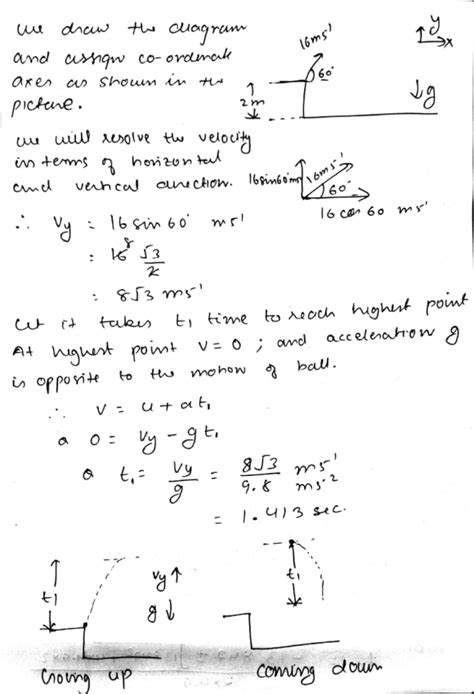 we draw the diagram
and assign co-ordinate
axes as shown in the
picture.
16 ms⁻¹
60°
y
x
2m
g
we will resolve the velocity
in terms of horizontal
and vertical direction.
16sin60 ms⁻¹
16ms⁻¹
60°
16 cos 60 ms⁻¹
∴ Vy = 16 sin 60° ms⁻¹
= 16 8 √3/2
= 8√3 ms⁻¹
Let it takes t₁ time to reach highest point
At highest point V = 0 ; and acceleration g
is opposite to the motion of ball.
∴ V = u + at₁
a 0 = Vy - gt₁
a t₁ = Vy/g = 8√3/9.8 ms⁻¹/ms⁻²
= 1.413 sec.
t₁
Vy ↑
g ↓
t₁
Going up
Coming down